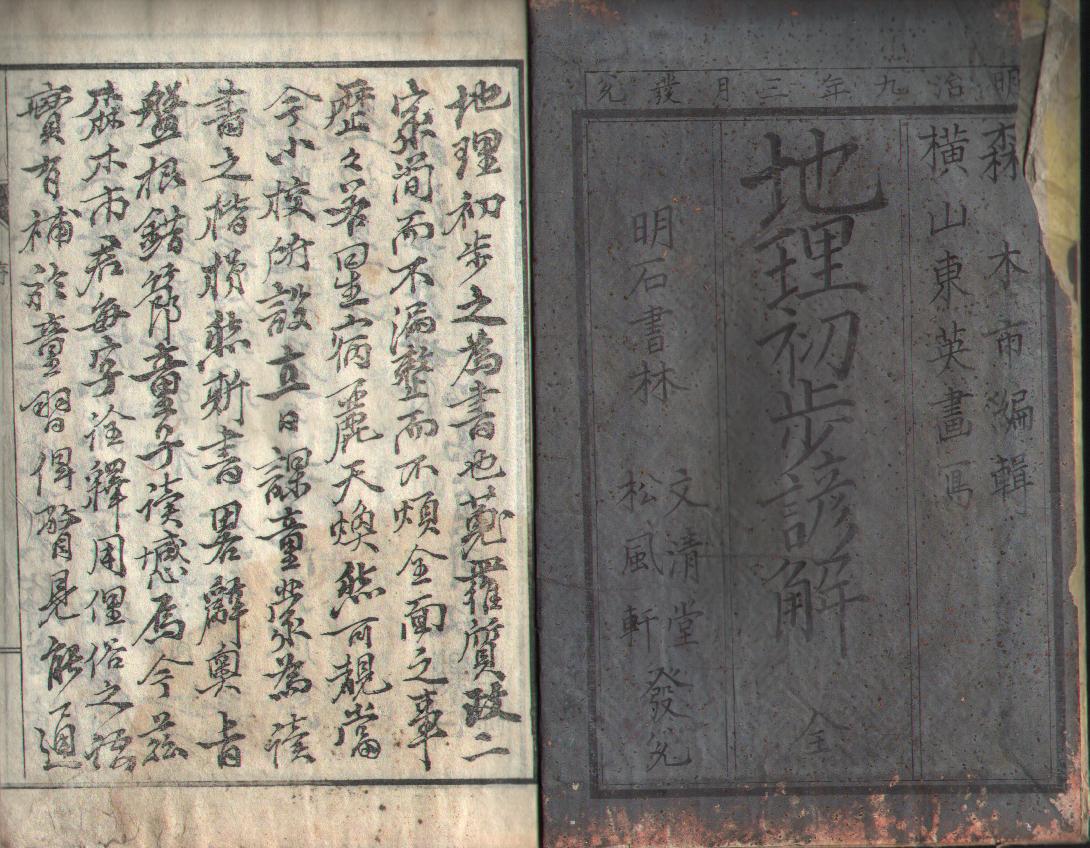 明治九年三月發兌
森木市編輯
横山東英畫冩
地理初步諺解 全
明石書林
文清堂
松風軒
發兌
地理初步之為書也蒐羅質政二
宗簡而不漏整而不煩全面之事
歴々若星宿麗天煥然可覩當
今小校所設立日課童蒙為讀
書之楷梯然斯書畧辭奥旨
盤根錯節童子讀憾焉今茲
森木市君每字詮釋用俚俗之語
實有補於童習俾瞖見能通